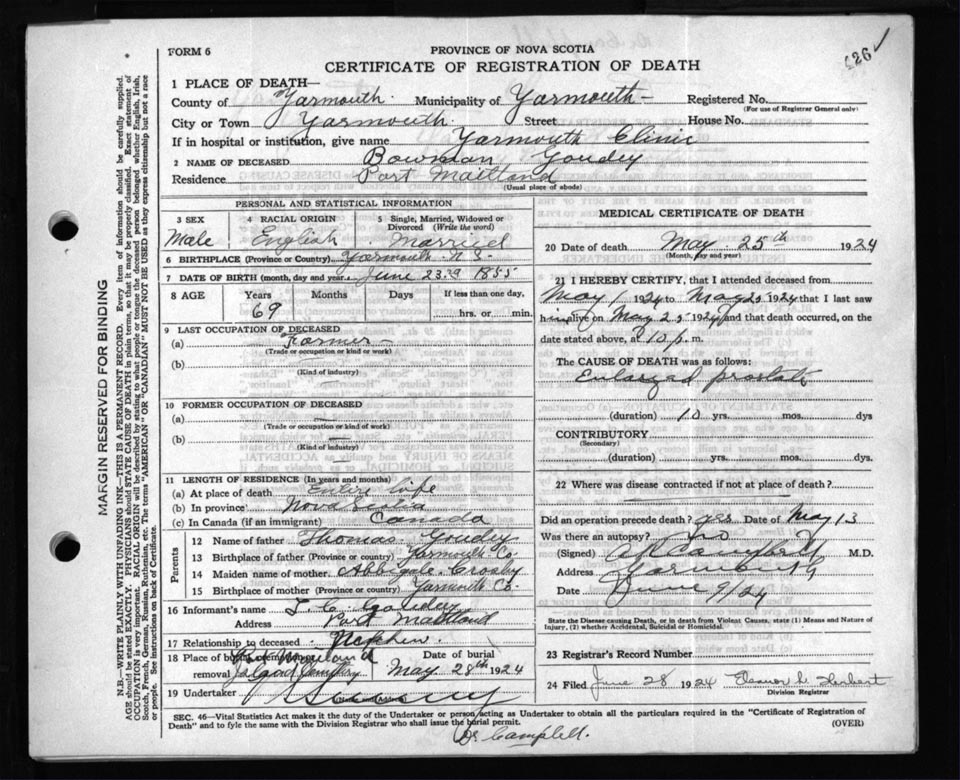 426 ✓
FORM 6
PROVINCE OF NOVA SCOTIA
CERTIFICATE OF REGISTRATION OF DEATH
MARGIN RESERVED FOR BINDING
N.B.—WRITE PLAINLY WITH UNFADING INK—THIS IS A PERMANENT RECORD. Every item of information should be carefully supplied.
AGE should be stated EXACTLY. PHYSICIANS should STATE CAUSE OF DEATH in plain terms, so that it may be properly classified. Exact statement of
OCCUPATION is very important. RACIAL ORIGIN will be described by stating to what people or tongue the deceased person belonged whether English, Irish,
Scotch, French, German, Russian, Ruthenian, etc. The terms "AMERICAN" OR "CANADIAN" MUST NOT BE USED as they express citizenship but not a race or
people. See instructions on back of Certificate.
1 PLACE OF DEATH—
County of Yarmouth Municipality of Yarmouth— Registered No.
(For use of Registrar General only)
City or Town Yarmouth. Street House No.
If in hospital or institution, give name Yarmouth Clinic
2 NAME OF DECEASED Bowman Goudey
Residence Port Maitland
(Usual place of abode)
PERSONAL AND STATISTICAL INFORMATION
3 SEX
Male
4 RACIAL ORIGIN
English
5 Single, Married, Widowed or
Divorced (Write the word)
Married
6 BIRTHPLACE (Province or Country) Yarmouth N.S.
7 DATE OF BIRTH (month, day and year) June 23rd 1855
8 AGE Years Months Days If less than one day,
69 hrs. or min.
9 LAST OCCUPATION OF DECEASED
(a) Farmer—
(Trade or occupation or kind or work)
(b)
(Kind of industry)
10 FORMER OCCUPATION OF DECEASED
(a) —
(Trade or occupation or kind or work)
(b) —
(Kind of industry)
11 LENGTH OF RESIDENCE (In years and months)
(a) At place of death Entire life
(b) In province Nova Scotia
(c) In Canada (if an immigrant) Canada
Parents
12 Name of father Thomas Goudey
13 Birthplace of father (Province or country) Yarmouth Co.
14 Maiden name of mother Abbigale Crosby
15 Birthplace of mother (Province or country) Yarmouth Co.
16 Informant's name Goudey
Address Port Maitland
17 Relationship to deceased Nephew.
18 Place of burial Date of burial
removal May 28th 1924
19 Undertaker
MEDICAL CERTIFICATE OF DEATH
20 Date of death May 25th 1924
(Month, day and year)
21 I HEREBY CERTIFY, that I attended deceased from
May 1 1924 to May 25 1924 that I last saw
him alive on May 25 1924 and that death occurred, on the
date stated above, at 10 p. m.
The CAUSE OF DEATH was as follows:
Enlarged prostate
(duration) 10 yrs. mos. dys
CONTRIBUTORY
(Secondary)
(duration) yrs. mos. dys.
22 Where was disease contracted if not at place of death?
Did an operation precede death? yes Date of May 13
Was there an autopsy? no
(Signed) Campbell M.D.
Address Yarmouth
Date June 9/24
State the Disease causing Death, or in death from Violent Causes, state (1) Means and Nature of
Injury, (2) whether Accidental, Suicidal or Homicidal.
23 Registrar's Record Number
24 Filed June 28 1924 Eleanor
Division Registrar
SEC. 46—Vital Statistics Act makes it the duty of the Undertaker or person acting as Undertaker to obtain all the particulars required in the "Certificate of Registration of
Death" and to fyle the same with the Division Registrar who shall issue the burial permit. (OVER)
Dr Campbell.